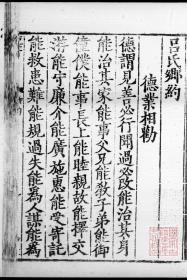 呂氏鄉約
德業相勸
德謂見善必行聞過必改能治其身
能治其家能事父兄能教子弟能御
僮僕能事長上能睦親故能擇交
游能守廉介能廣施惠能受寄託
能救患難能規過失能為人謀能為